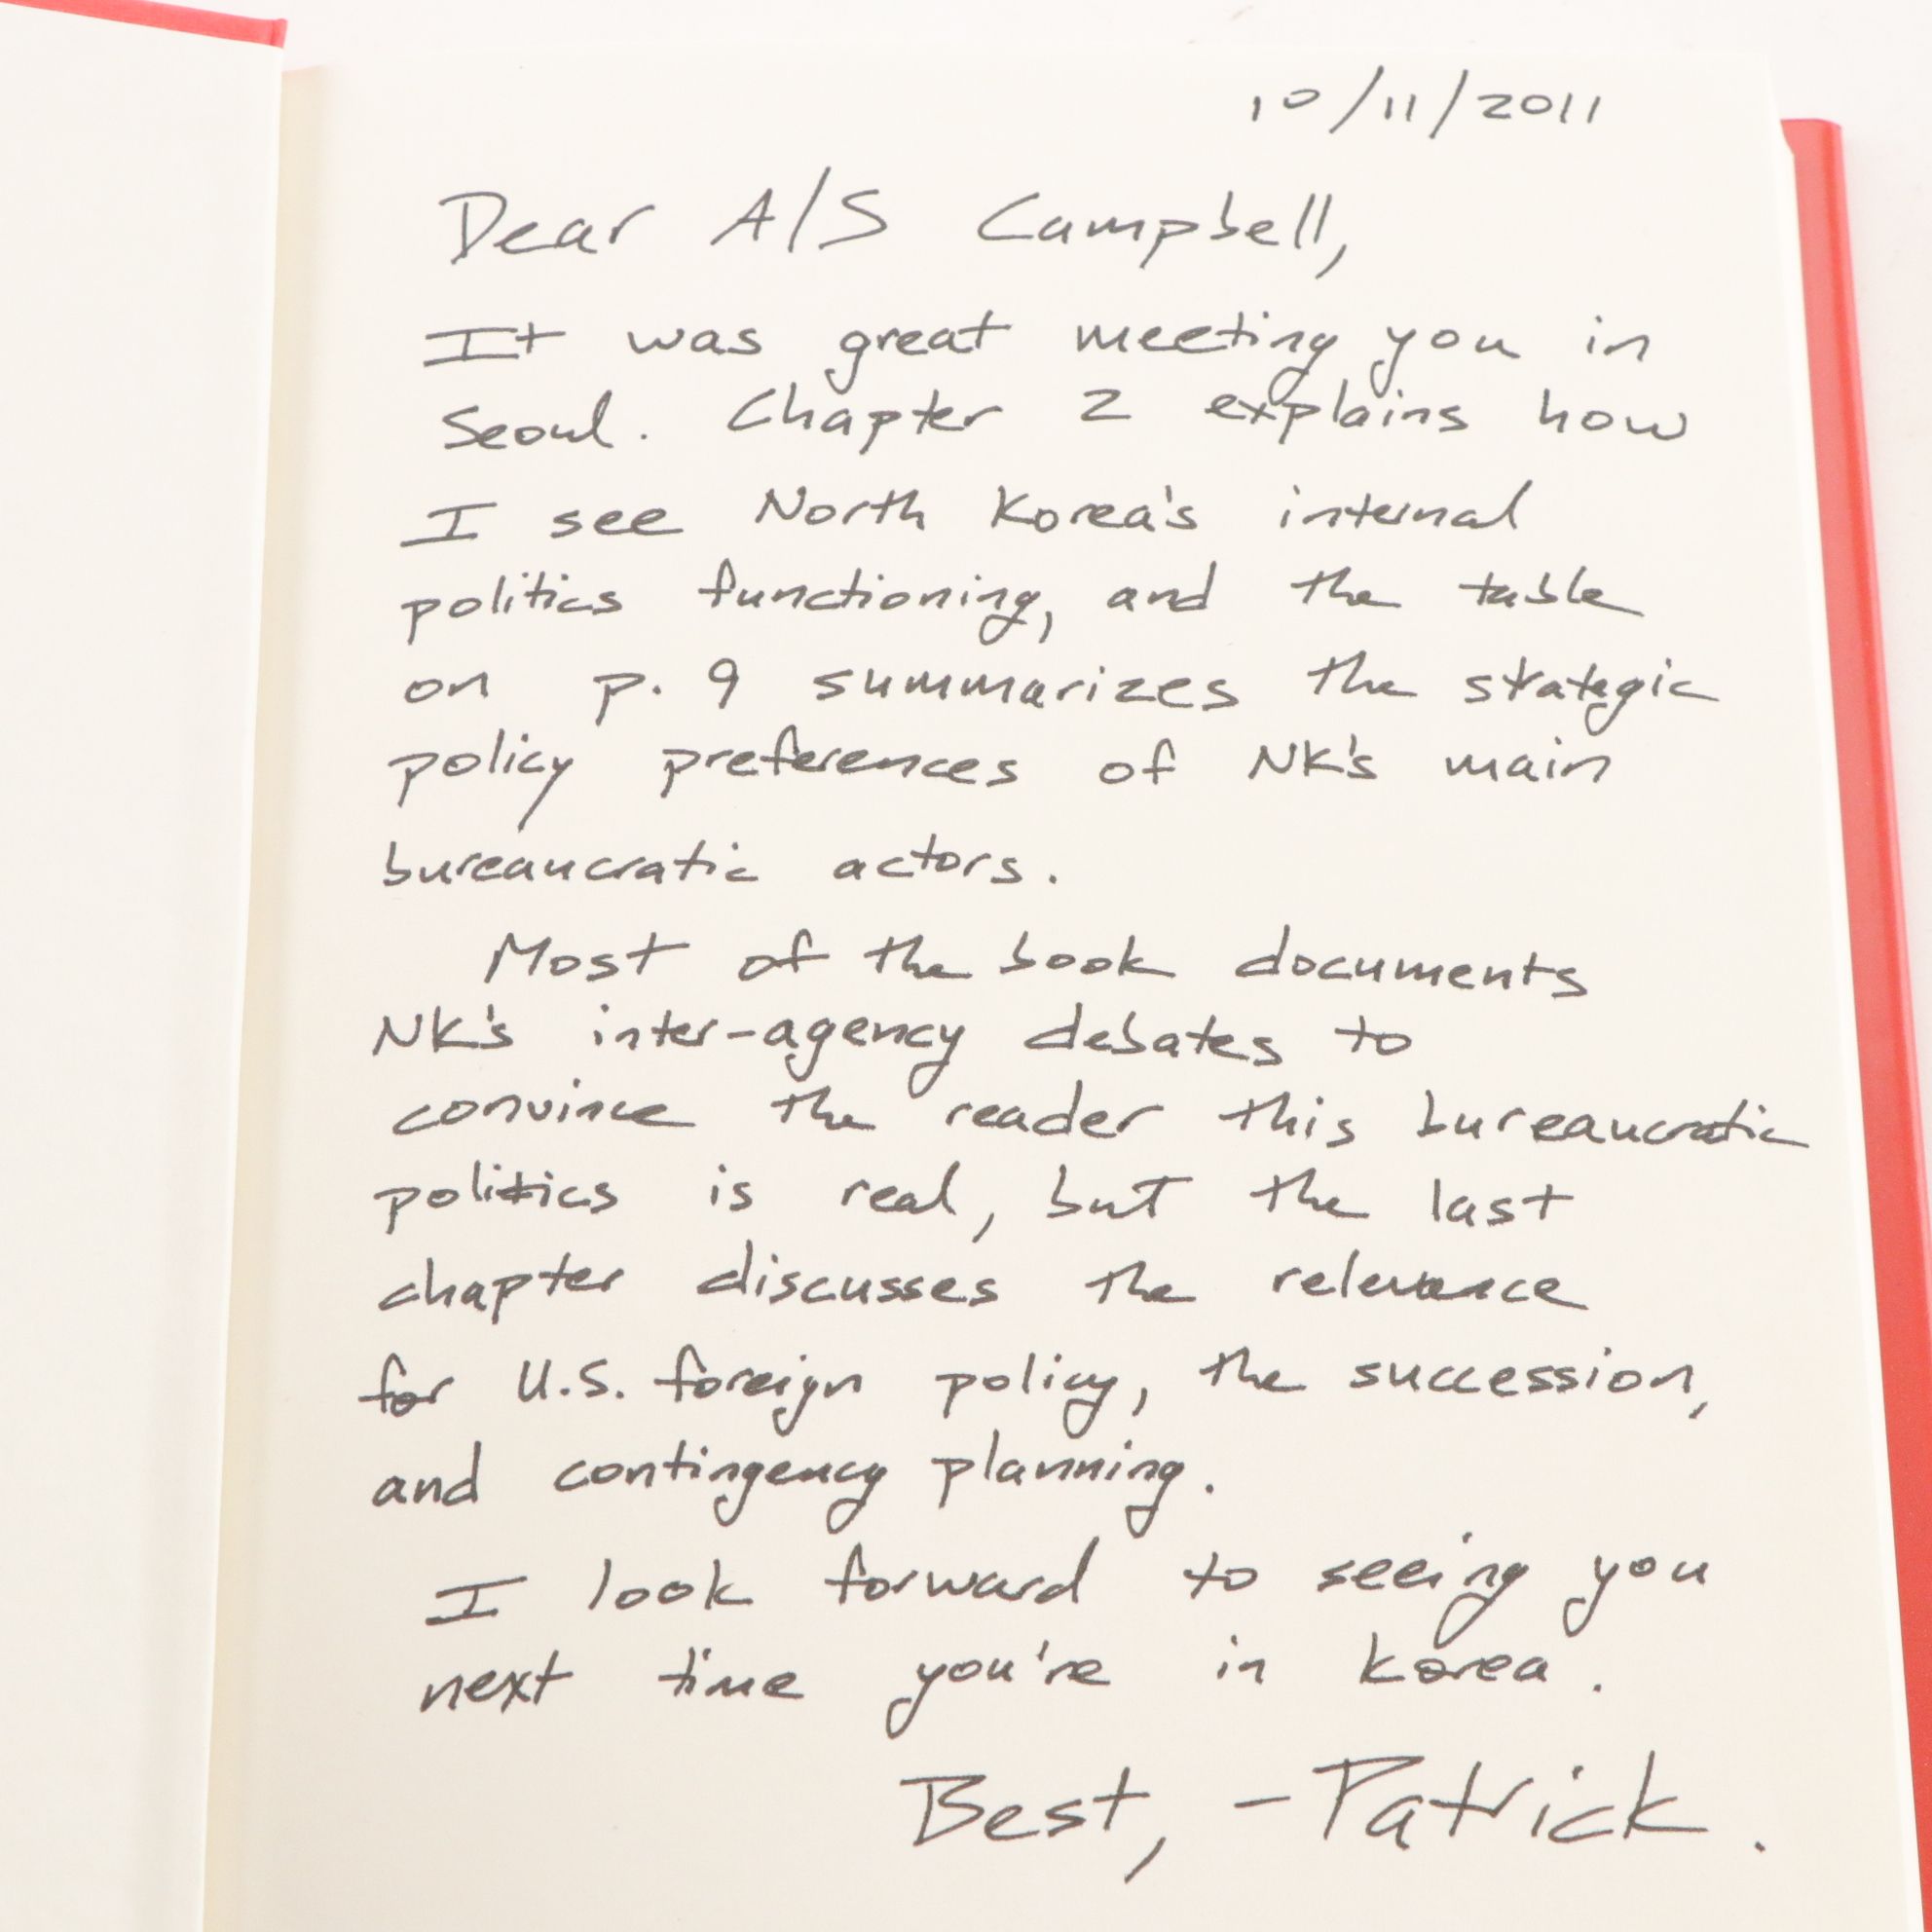 10/11/2011
Dear A/S Campbell,
It was great meeting you in
Seoul. Chapter 2 explains how
I see North Korea's internal
politics functioning, and the table
on p. 9 summarizes the strategic
policy preferences of NK's main
bureaucratic actors.
Most of the book documents
NK's inter-agency debates to
convince the reader this bureaucratic
politics is real, but the last
chapter discusses the relevance
for U.S. foreign policy, the succession,
and contingency planning.
I look forward to seeing you
next time you're in Korea.
Best, -Patrick.